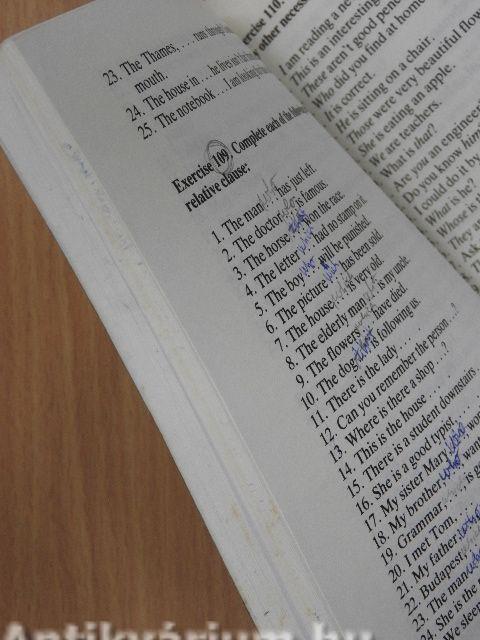 23. The Thames, . . . runs through
mouth.
24. The house in . . . he lives
25. The notebook . . . I am looking
Exercise 109 Complete each of the following
relative clause:
1. The man . . . has just left.
2. The doctor is famous.
3. The horse won the race.
4. The letter had no stamp on it.
5. The boy who will be punished.
6. The picture has been sold.
7. The house . . . is very old.
8. The elderly man is my uncle.
9. The flowers have died.
10. The dog is following us.
11. There is the lady . . . .
12. Can you remember the person . . . ?
13. Where is there a shop . . . ?
14. This is the house . . . .
15. There is a student downstairs
16. She is a good typist, . . . .
17. My sister Mary
18. My brother
19. Grammar,
20. I met Tom, . . .
21. My father,
22. Budapest
23. The man
She is the
We sleep
Exercise 110.
other necess
I am reading a ne
This is an interesting
These aren't good pen
Who did you find at home
It's correct.
He is sitting on a chair.
Those were very beautiful flow
She is eating an apple.
We are teachers.
What is that?
Are you an engineer
Do you know him
I could do it by
What is he?
Whose is
They are
Ask
Antikvárium.hu